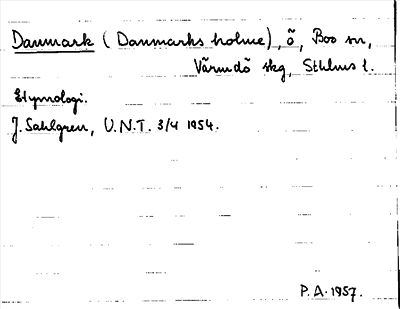 Danmark (Danmarks holme), ö, Boo sn,
Värmdö skg, Sthlms l.
Etymologi.
J. Sahlgren, U.N.T. 3/4 1954.
P.A. 1957.